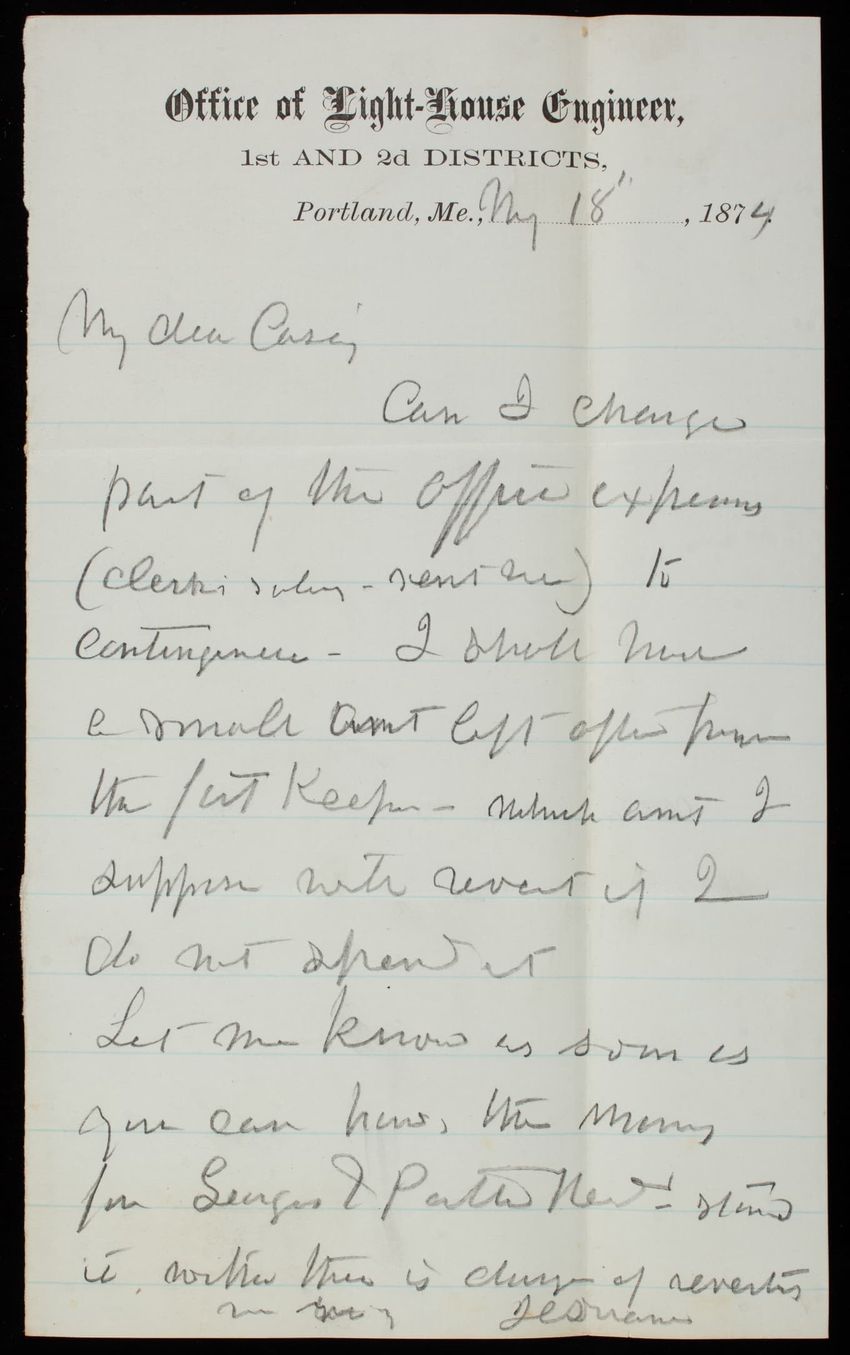 Office of Light-House Engineer,
1st AND 2d DISTRICTS,
Portland, Me., My 18", 1874
My dear Casey
Can I charge
part of the office expenses
(clerks salary - rent &c) to
contingencies - I shall have
a small amt left after from
the fort Keeper - which amt I
suppose will revert if I
do not spend it
Let me know as soon as
you can how, the money
for Georges & Head -
it, whether there is danger of reverting